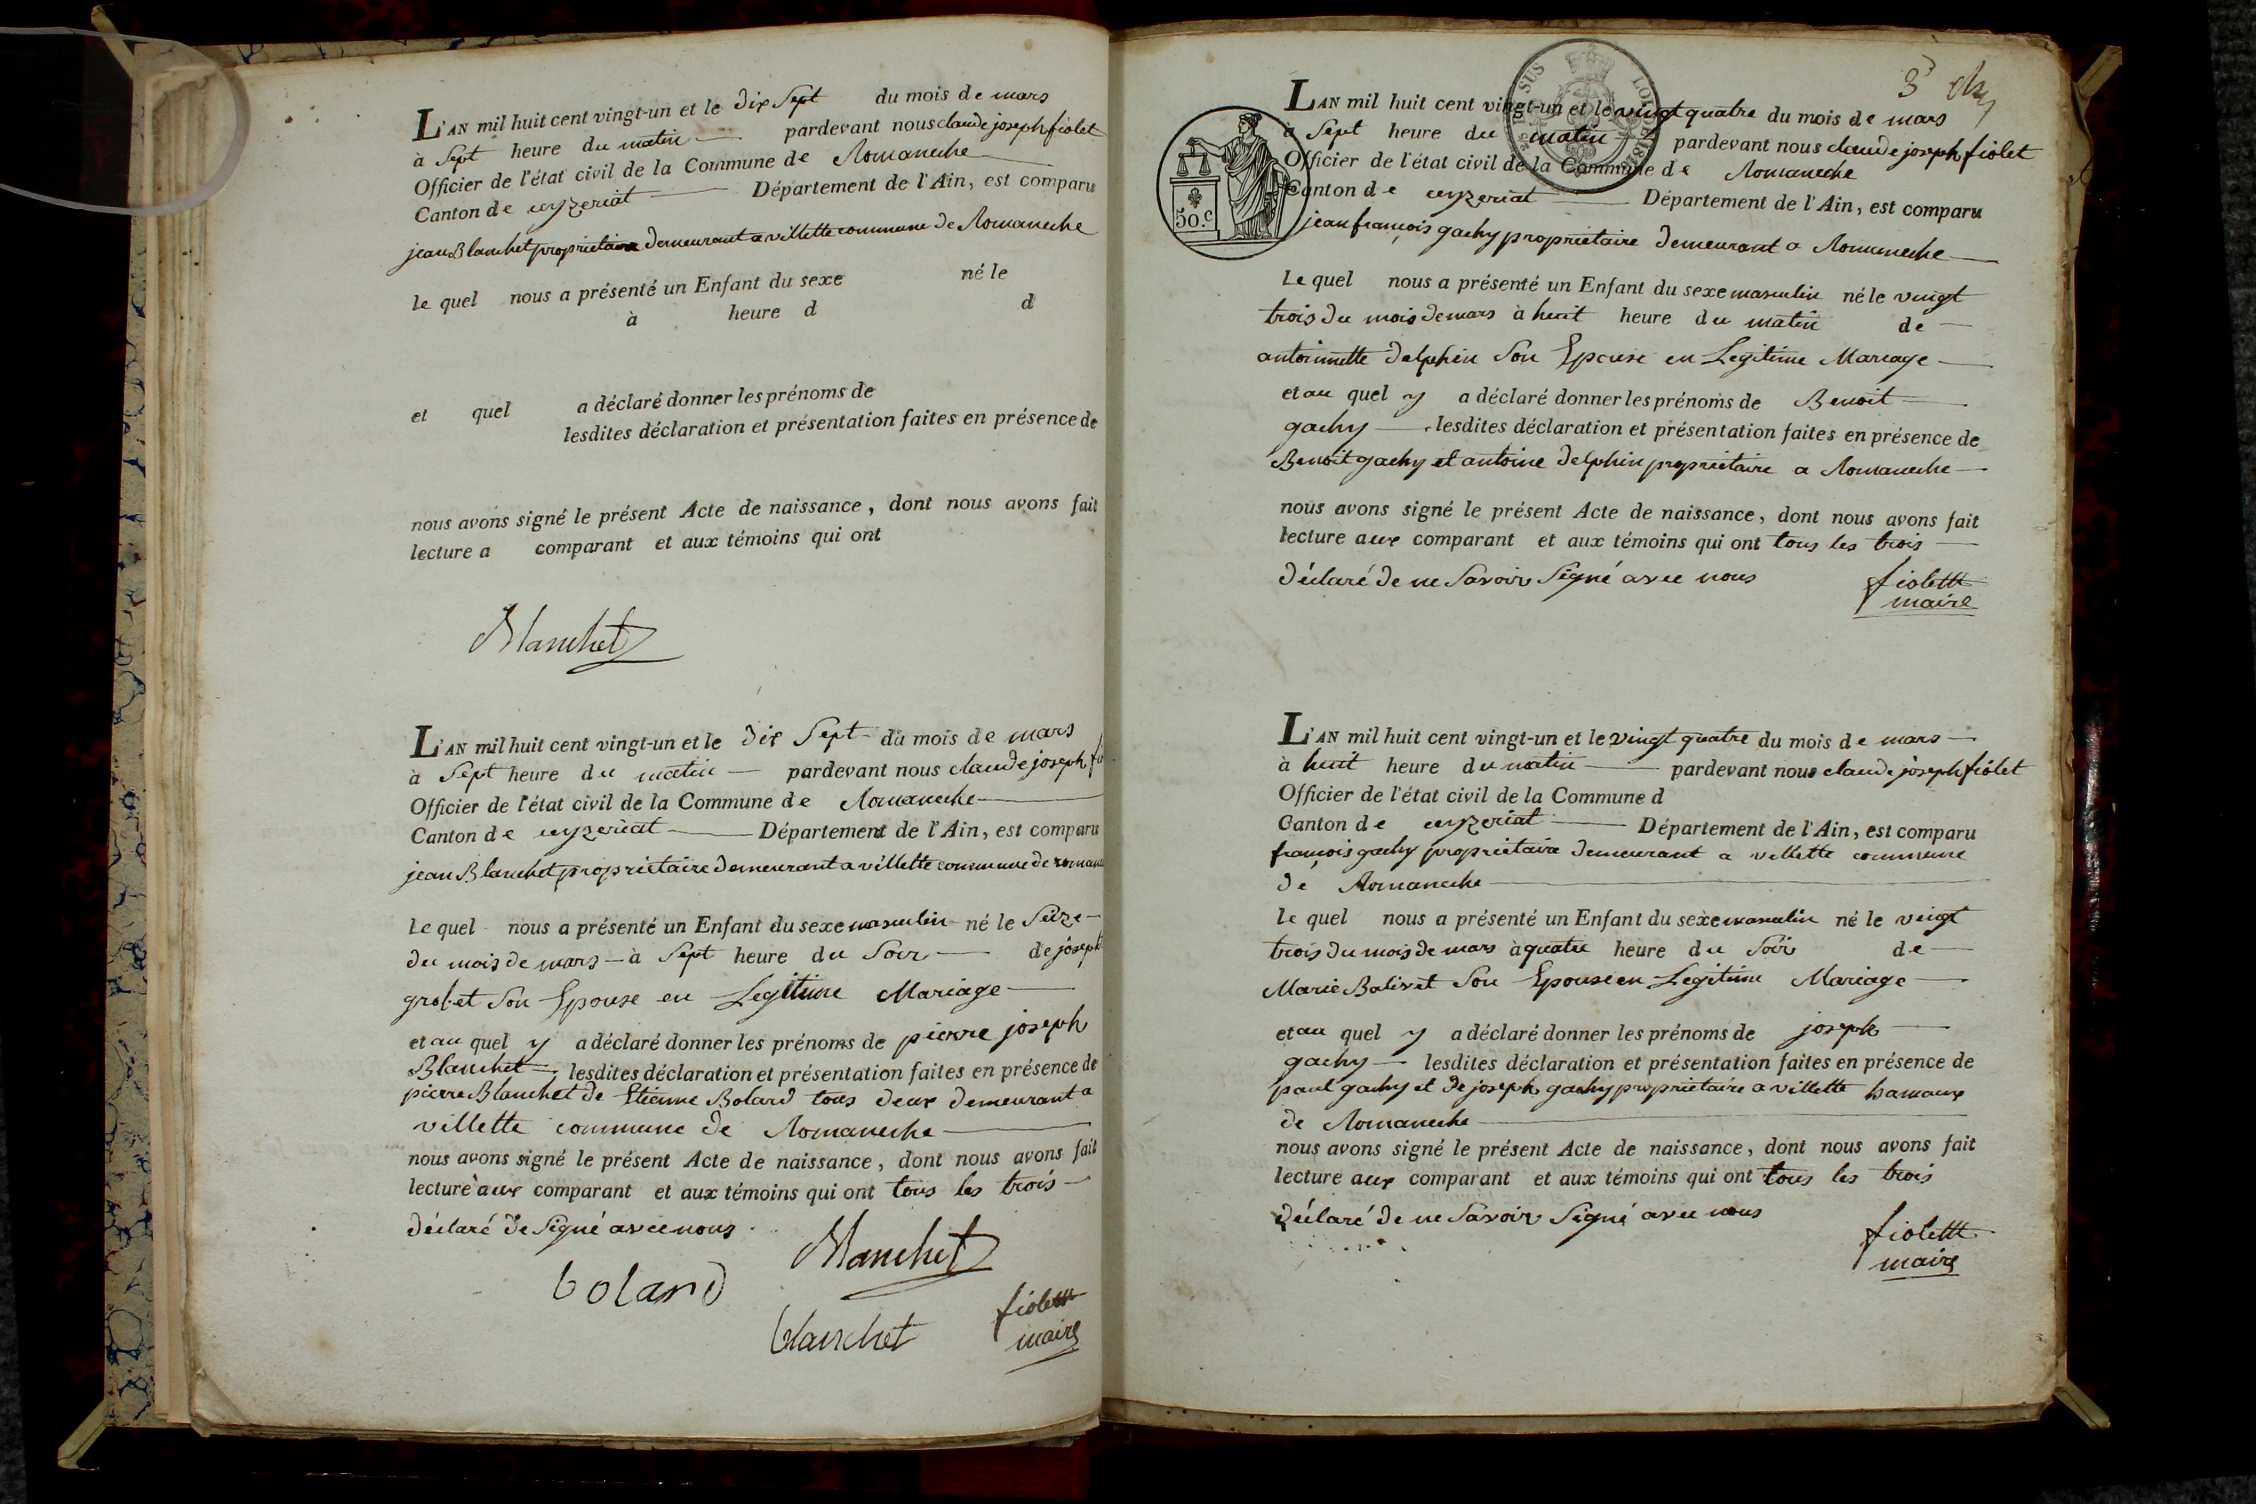 L'AN mil huit cent vingt-un et le dix Sept du mois de mars
à Sept heure du matin pardevant nous claude joseph fiolet
Officier de l'état civil de la Commune de Romaneche
Canton de ceyzeriat Département de l'Ain, est comparu
jean Blanchet proprietaire demeurant a villette commune de Romaneche
le quel nous a présenté un Enfant du sexe né le
à heure d d
et quel a déclaré donner les prénoms de
lesdites déclaration et présentation faites en présence de
nous avons signé le présent Acte de naissance, dont nous avons fait
lecture a comparant et aux témoins qui ont
Blanchet
L'AN mil huit cent vingt-un et le dix Sept du mois de mars
à Sept heure du matin pardevant nous claude joseph fi
Officier de l'état civil de la Commune de Romaneche
Canton de ceyzeriat Département de l'Ain, est comparu
jean Blanchet proprietaire demeurant a villette commune de romane
le quel nous a présenté un Enfant du sexe masculin né le Seize
du mois de mars à Sept heure du Soir de joseph
grobet Son Epouse en Legitime Mariage
et au quel y a déclaré donner les prénoms de pierre joseph
Blanchet lesdites déclaration et présentation faites en présence de
pierre Blanchet de Etienne Bolard tous deux demeurant a
villette commune de Romaneche
nous avons signé le présent Acte de naissance, dont nous avons fait
lecture aux comparant et aux témoins qui ont tous les trois
déclaré de Signé avec nous
Blanchet
bolard
blanchet
fiolett
maire
3
L'AN mil huit cent vingt-un et le vingt quatre du mois de mars
à Sept heure du matin pardevant nous claude joseph fiolet
Officier de l'état civil de la Commune de Romaneche
Canton de ceyzeriat Département de l'Ain, est comparu
50.c
jean françois gachy proprietaire demeurant a Romaneche
le quel nous a présenté un Enfant du sexe masculin né le vingt
trois du mois de mars à huit heure du matin de
antoinnette delphin Son Epouse en Legitime Mariage
et au quel y a déclaré donner les prénoms de Benoit
gachy lesdites déclaration et présentation faites en présence de
Benoit gachy et antoine delphin proprietaire a Romaneche
nous avons signé le présent Acte de naissance, dont nous avons fait
lecture aux comparant et aux témoins qui ont tous les trois
déclaré de ne Savoir Signé avec nous
fiolett
maire
L'AN mil huit cent vingt-un et le vingt quatre du mois de mars
à huit heure du matin pardevant nous claude joseph fiolet
Officier de l'état civil de la Commune d
Canton de ceyzeriat Département de l'Ain, est comparu
françois gachy proprietaire demeurant a villette commune
de Romaneche
le quel nous a présenté un Enfant du sexe masculin né le vingt
trois du mois de mars à quatre heure du Soir de
Marie Balivet Son Epouse en Legitime Mariage
et au quel y a déclaré donner les prénoms de joseph
gachy lesdites déclaration et présentation faites en présence de
paul gachy et de joseph gachy proprietaire a villette hamaux
de Romaneche
nous avons signé le présent Acte de naissance, dont nous avons fait
lecture aux comparant et aux témoins qui ont tous les trois
déclaré de ne Savoir Signé avec nous
fiolett
maire